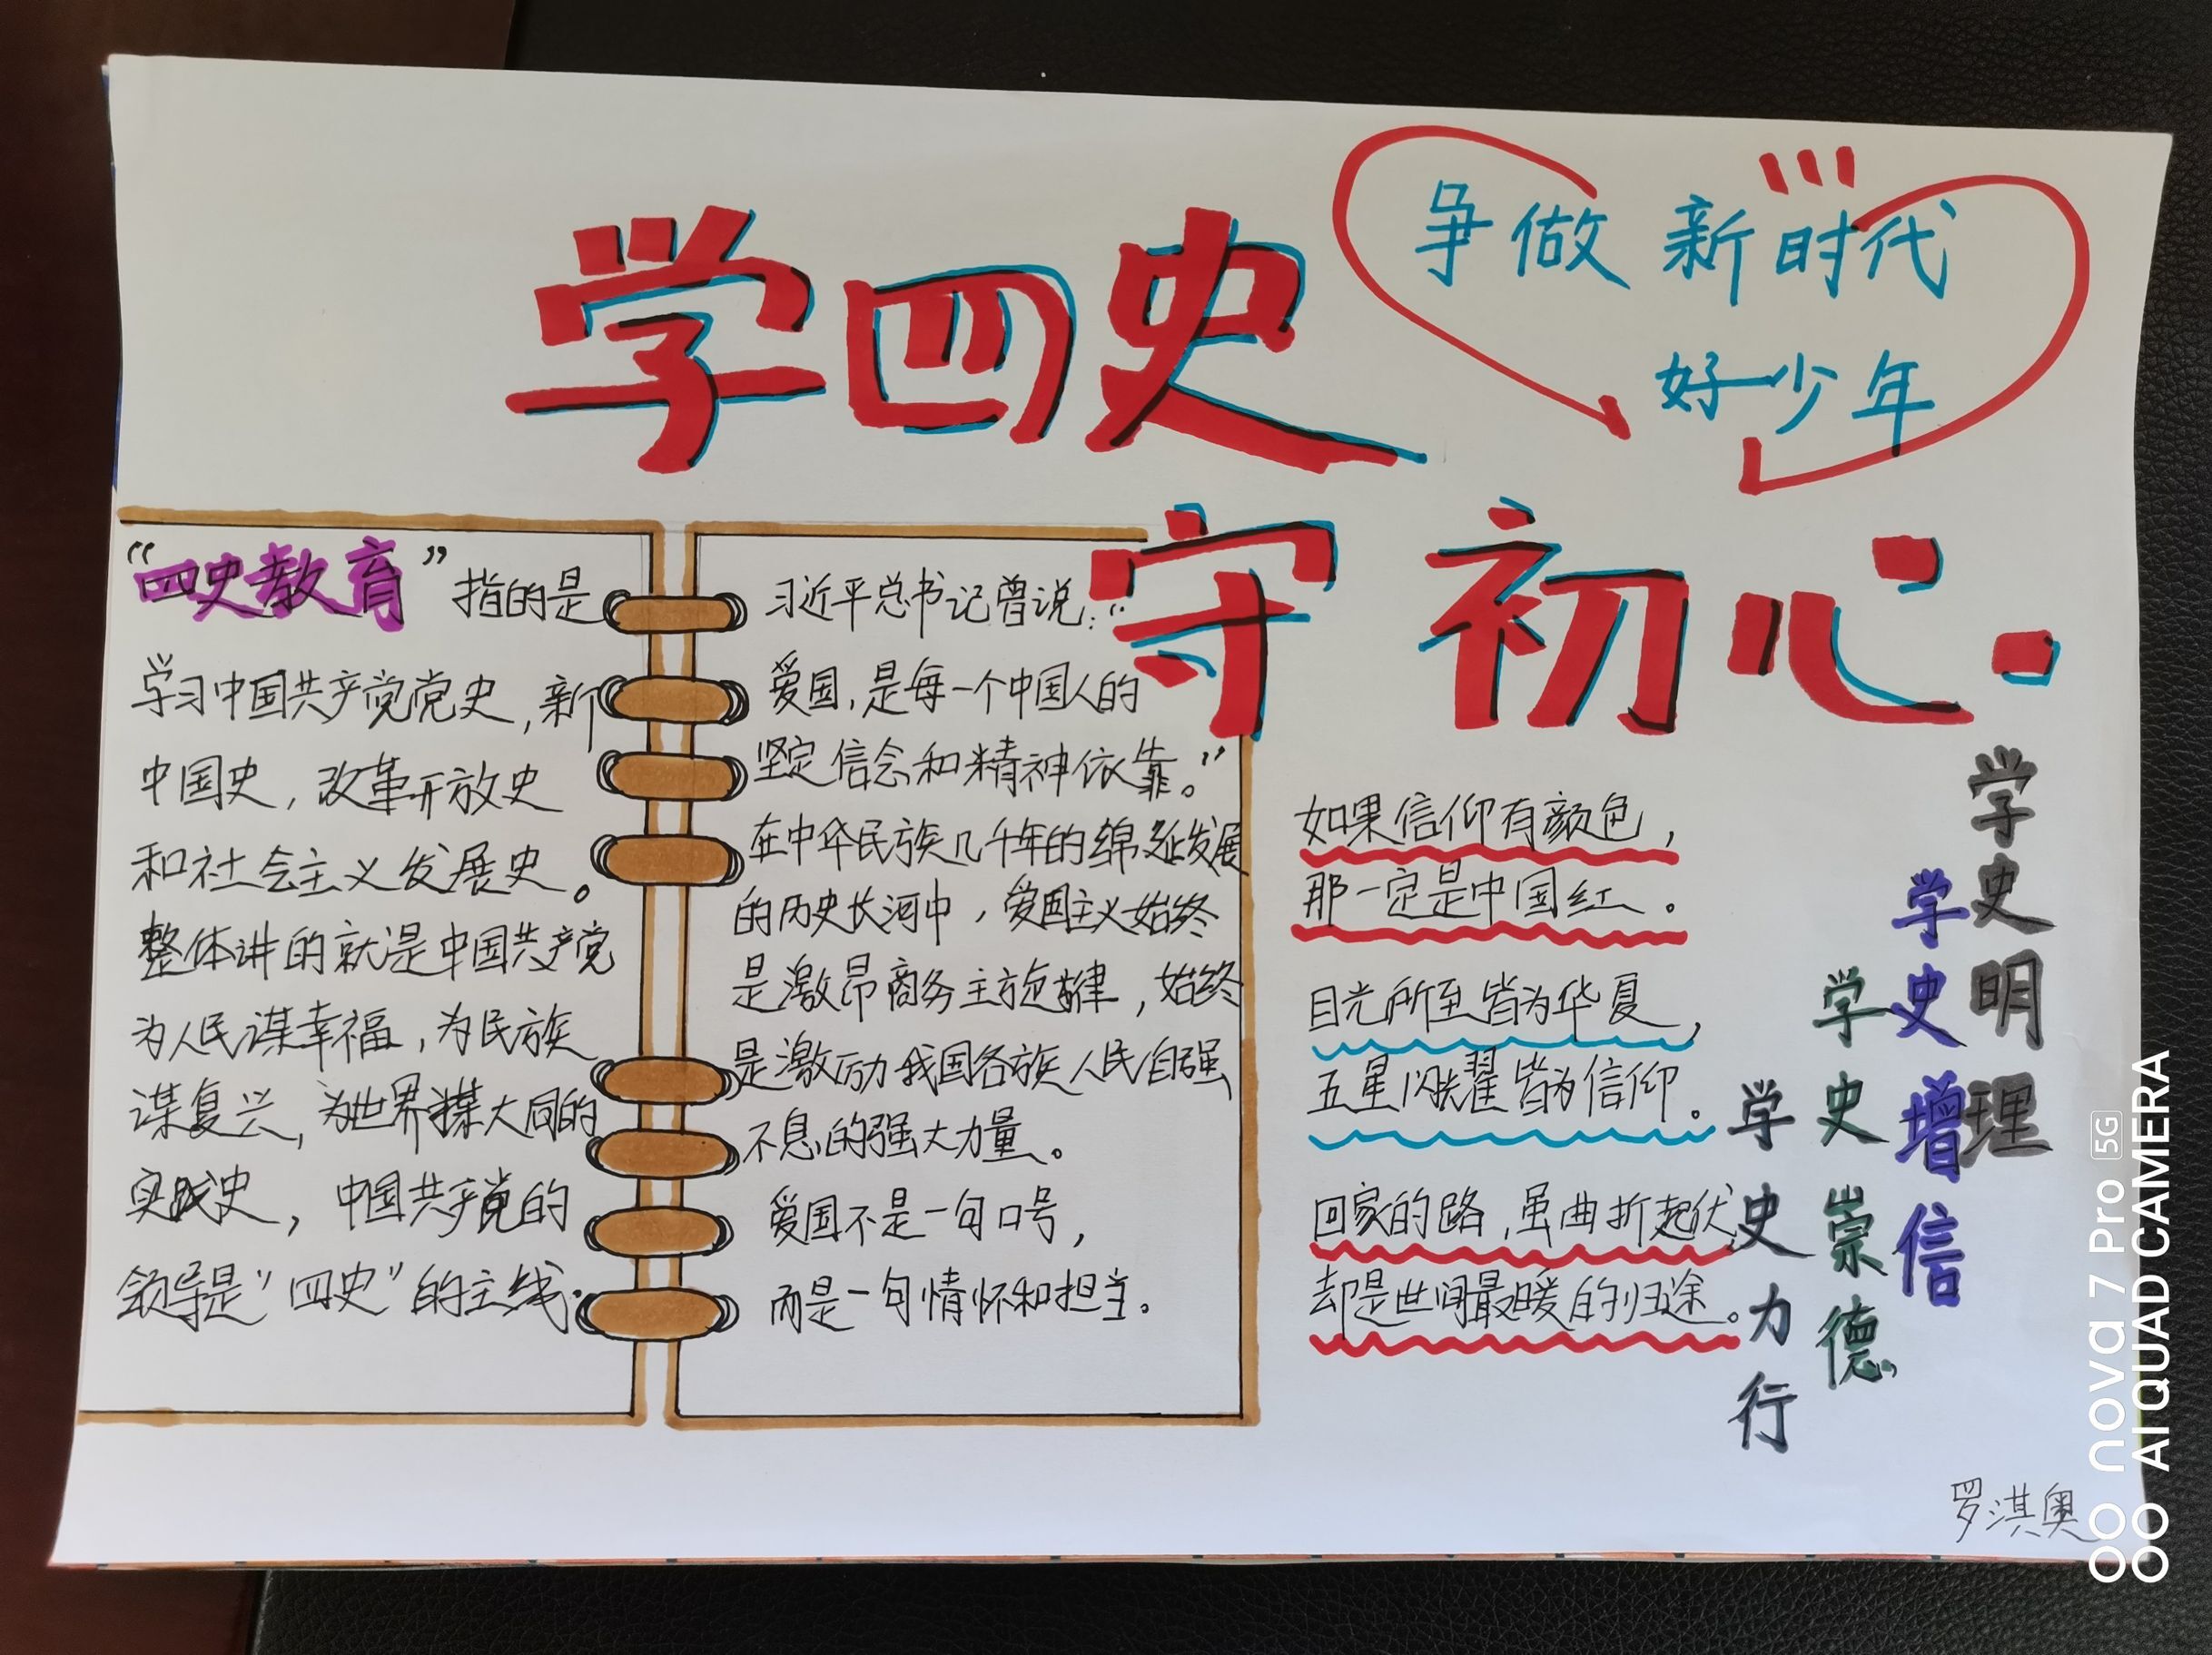 学四史
守初心.
争做新时代
好少年
“四史教育”指的是
学习中国共产党党史,新
中国史,改革开放史
和社会主义发展史。
整体讲的就是中国共产党
为人民谋幸福,为民族
谋复兴,为世界谋大同的
实践史,中国共产党的
领导是"四史"的主线.
习近平总书记曾说:“
爱国,是每一个中国人的
坚定信念和精神依靠。”
在中华民族几千年的绵延发展
的历史长河中,爱国主义始终
是激昂商务主旋律,始终
是激励我国各族人民自强
不息的强大力量。
爱国不是一句口号,
而是一句情怀和担当。
如果信仰有颜色,
那一定是中国红。
目光所至皆为华夏,
五星闪耀皆为信仰.
回家的路,虽曲折起伏,
却是世间最暖的归途。
学史明理
学史增信
学史崇德
学史力行
罗淇奥
nova 7 Pro 5G
AI QUAD CAMERA